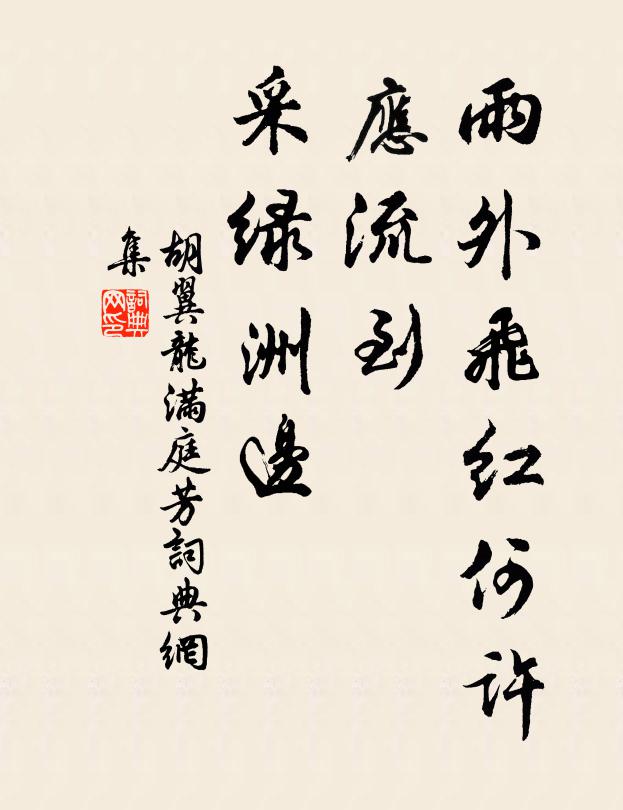 雨外飛紅何許
應流到
采緑洲邊
胡翼龍滿庭芳詞典網
集
詞典
网印